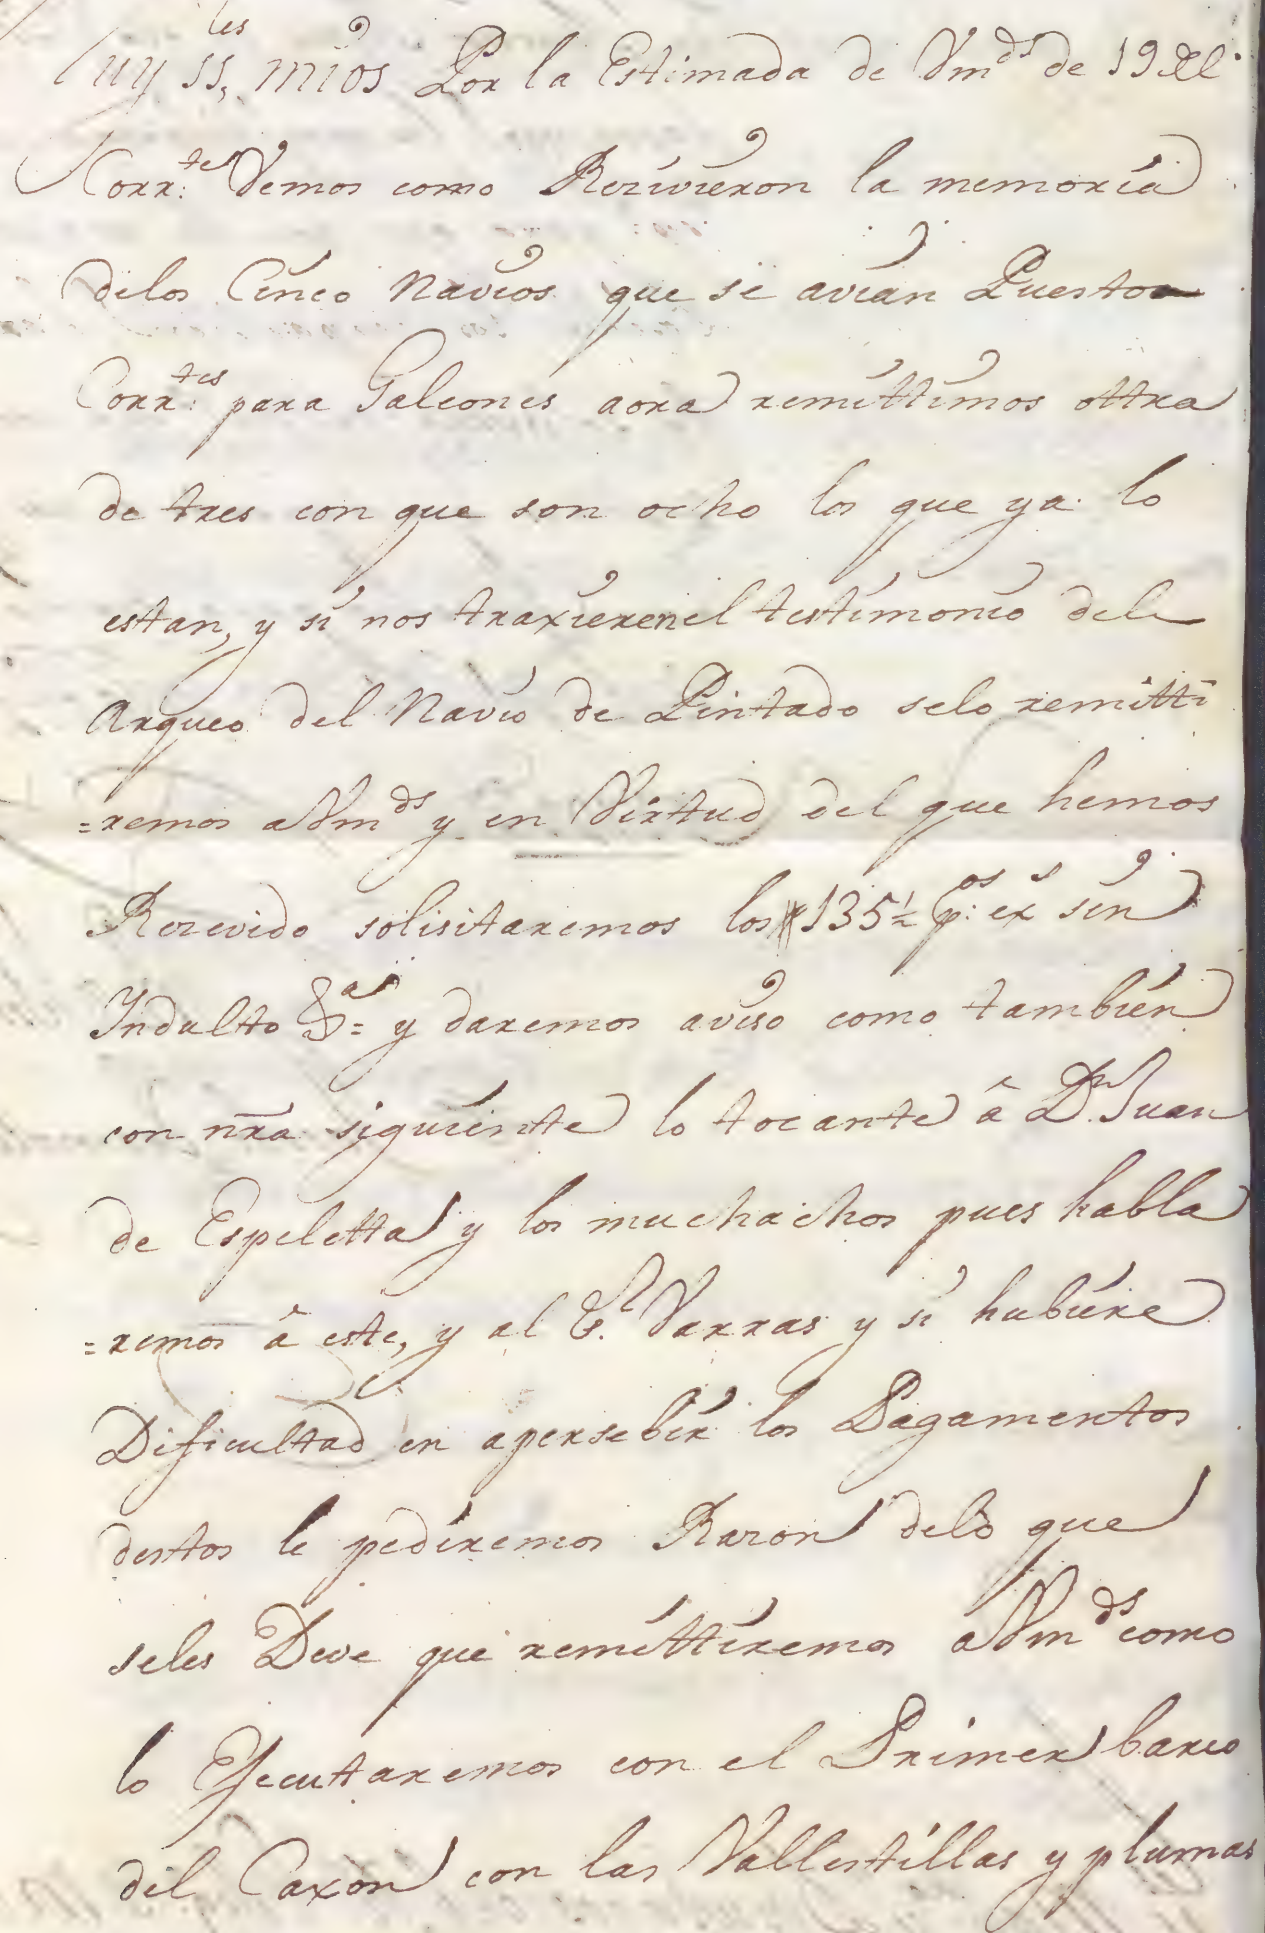 Muy ss.les mios Por la Estimada de Vmds de 19 del
Corr.te Vemos como Rezivieron la memoria
delos Cinco Navios que se avian Puesto
Corr.tes para Galeones aora remittimos ottra
de tres con que son ocho los que ya lo
estan, y si nos traxieren el testimonio del
Arqueo del Navio de Pintado selo remitti
=remos a Vmds y en Virtud del que hemos
Rezevido solisitaremos los 135½ p.os exs sin
Indulto &a= y daremos aviso como tambien
con nra siguiente lo tocante â Dn. Juan
de Espeletta y los muchachos pues habla
=remos â este, y al Gl. Varras y si hubiere
Dificultad en apersebir los Pagamentos
destos le pediremos Razon delo que
seles Deve que remittiremos a Vmds como
lo Ejecutaremos con el Primer barco
del Caxon con las Vallestillas y plumas